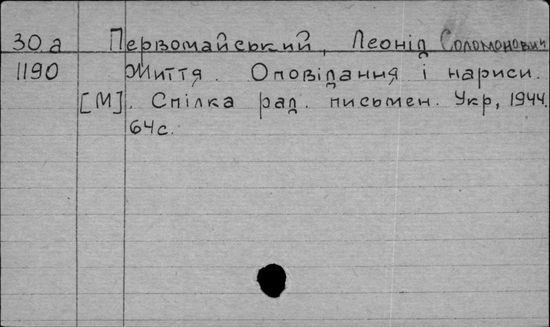 30а Первомайський, Леонід Соломонович
1190 Життя. Оповідання і нариси.
[М]. Спілка рад. письмен. Укр, 1944.
64с.